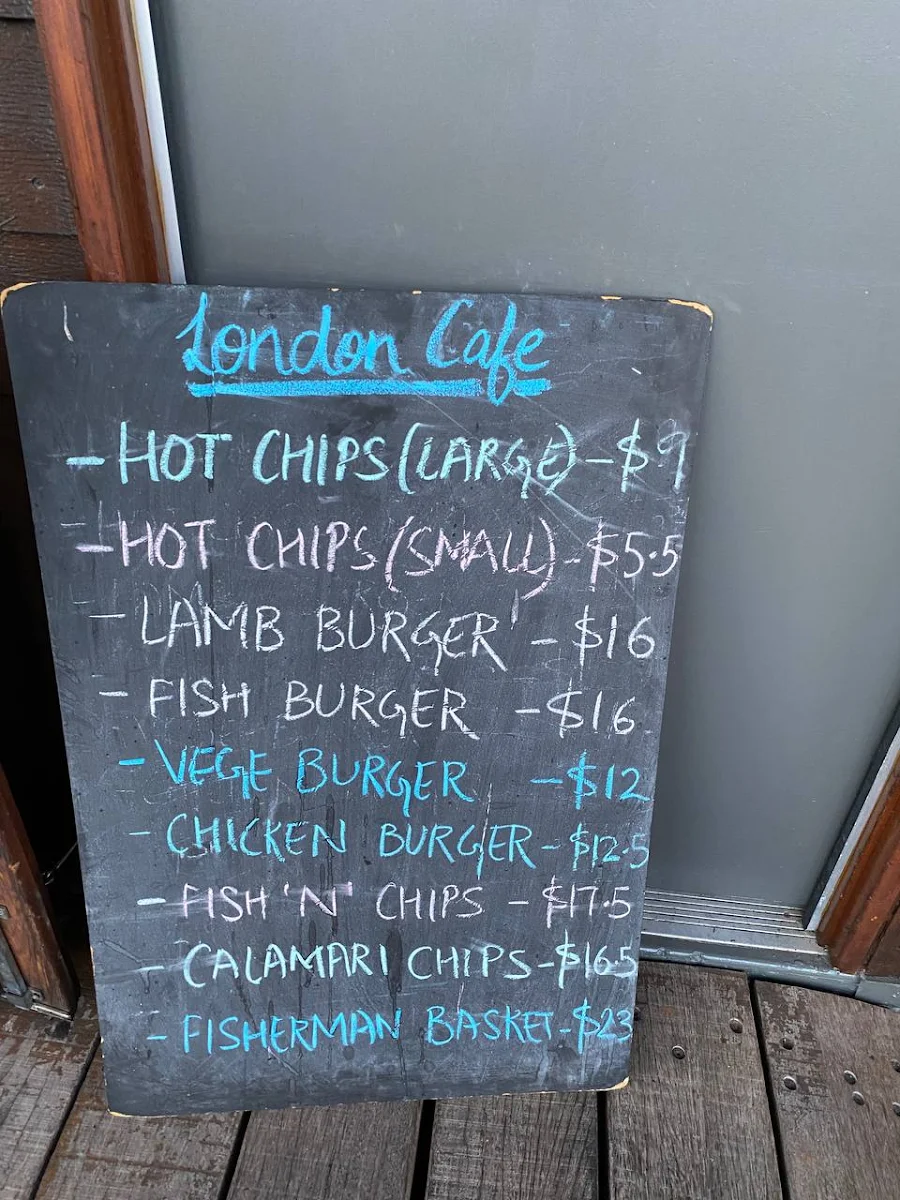 London Cafe
- HOT CHIPS (LARGE) - $9
- HOT CHIPS (SMALL) - $5.5
- LAMB BURGER - $16
- FISH BURGER - $16
- VEGE BURGER - $12
- CHICKEN BURGER - $12.5
- FISH 'N' CHIPS - $17.5
- CALAMARI CHIPS - $16.5
- FISHERMAN BASKET - $23